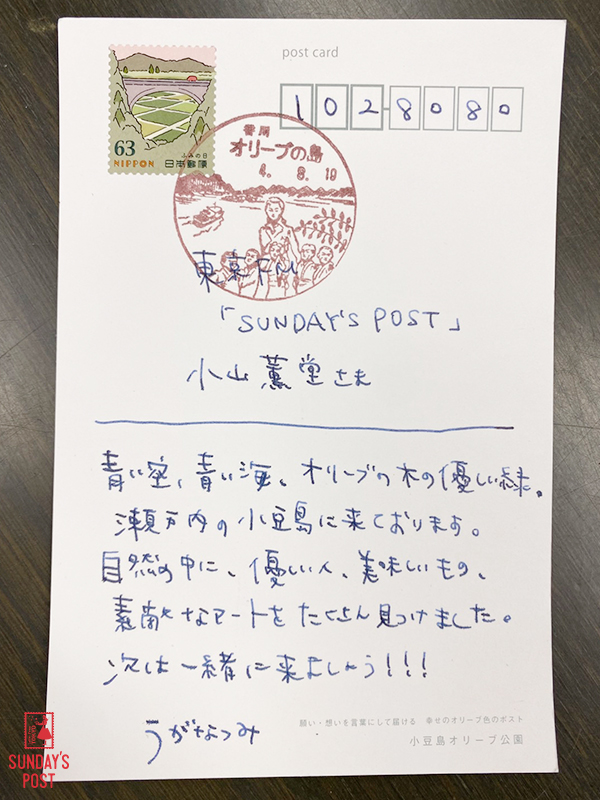 post card
102-8080
63
NIPPON
ふみの日
日本郵便
香川
オリーブの島
4. 8. 19
東京FM
「SUNDAY'S POST」
小山薫堂さま
青い空、青い海、オリーブの木の優しい緑。
瀬戸内の小豆島に来ております。
自然の中に、優しい人、美味しいもの、
素敵なアートをたくさん見つけました。
次は一緒に来ましょう!!!
うがなつみ
願い・想いを言葉にして届ける 幸せのオリーブ色のポスト
小豆島オリーブ公園
SUNDAY'S
POST